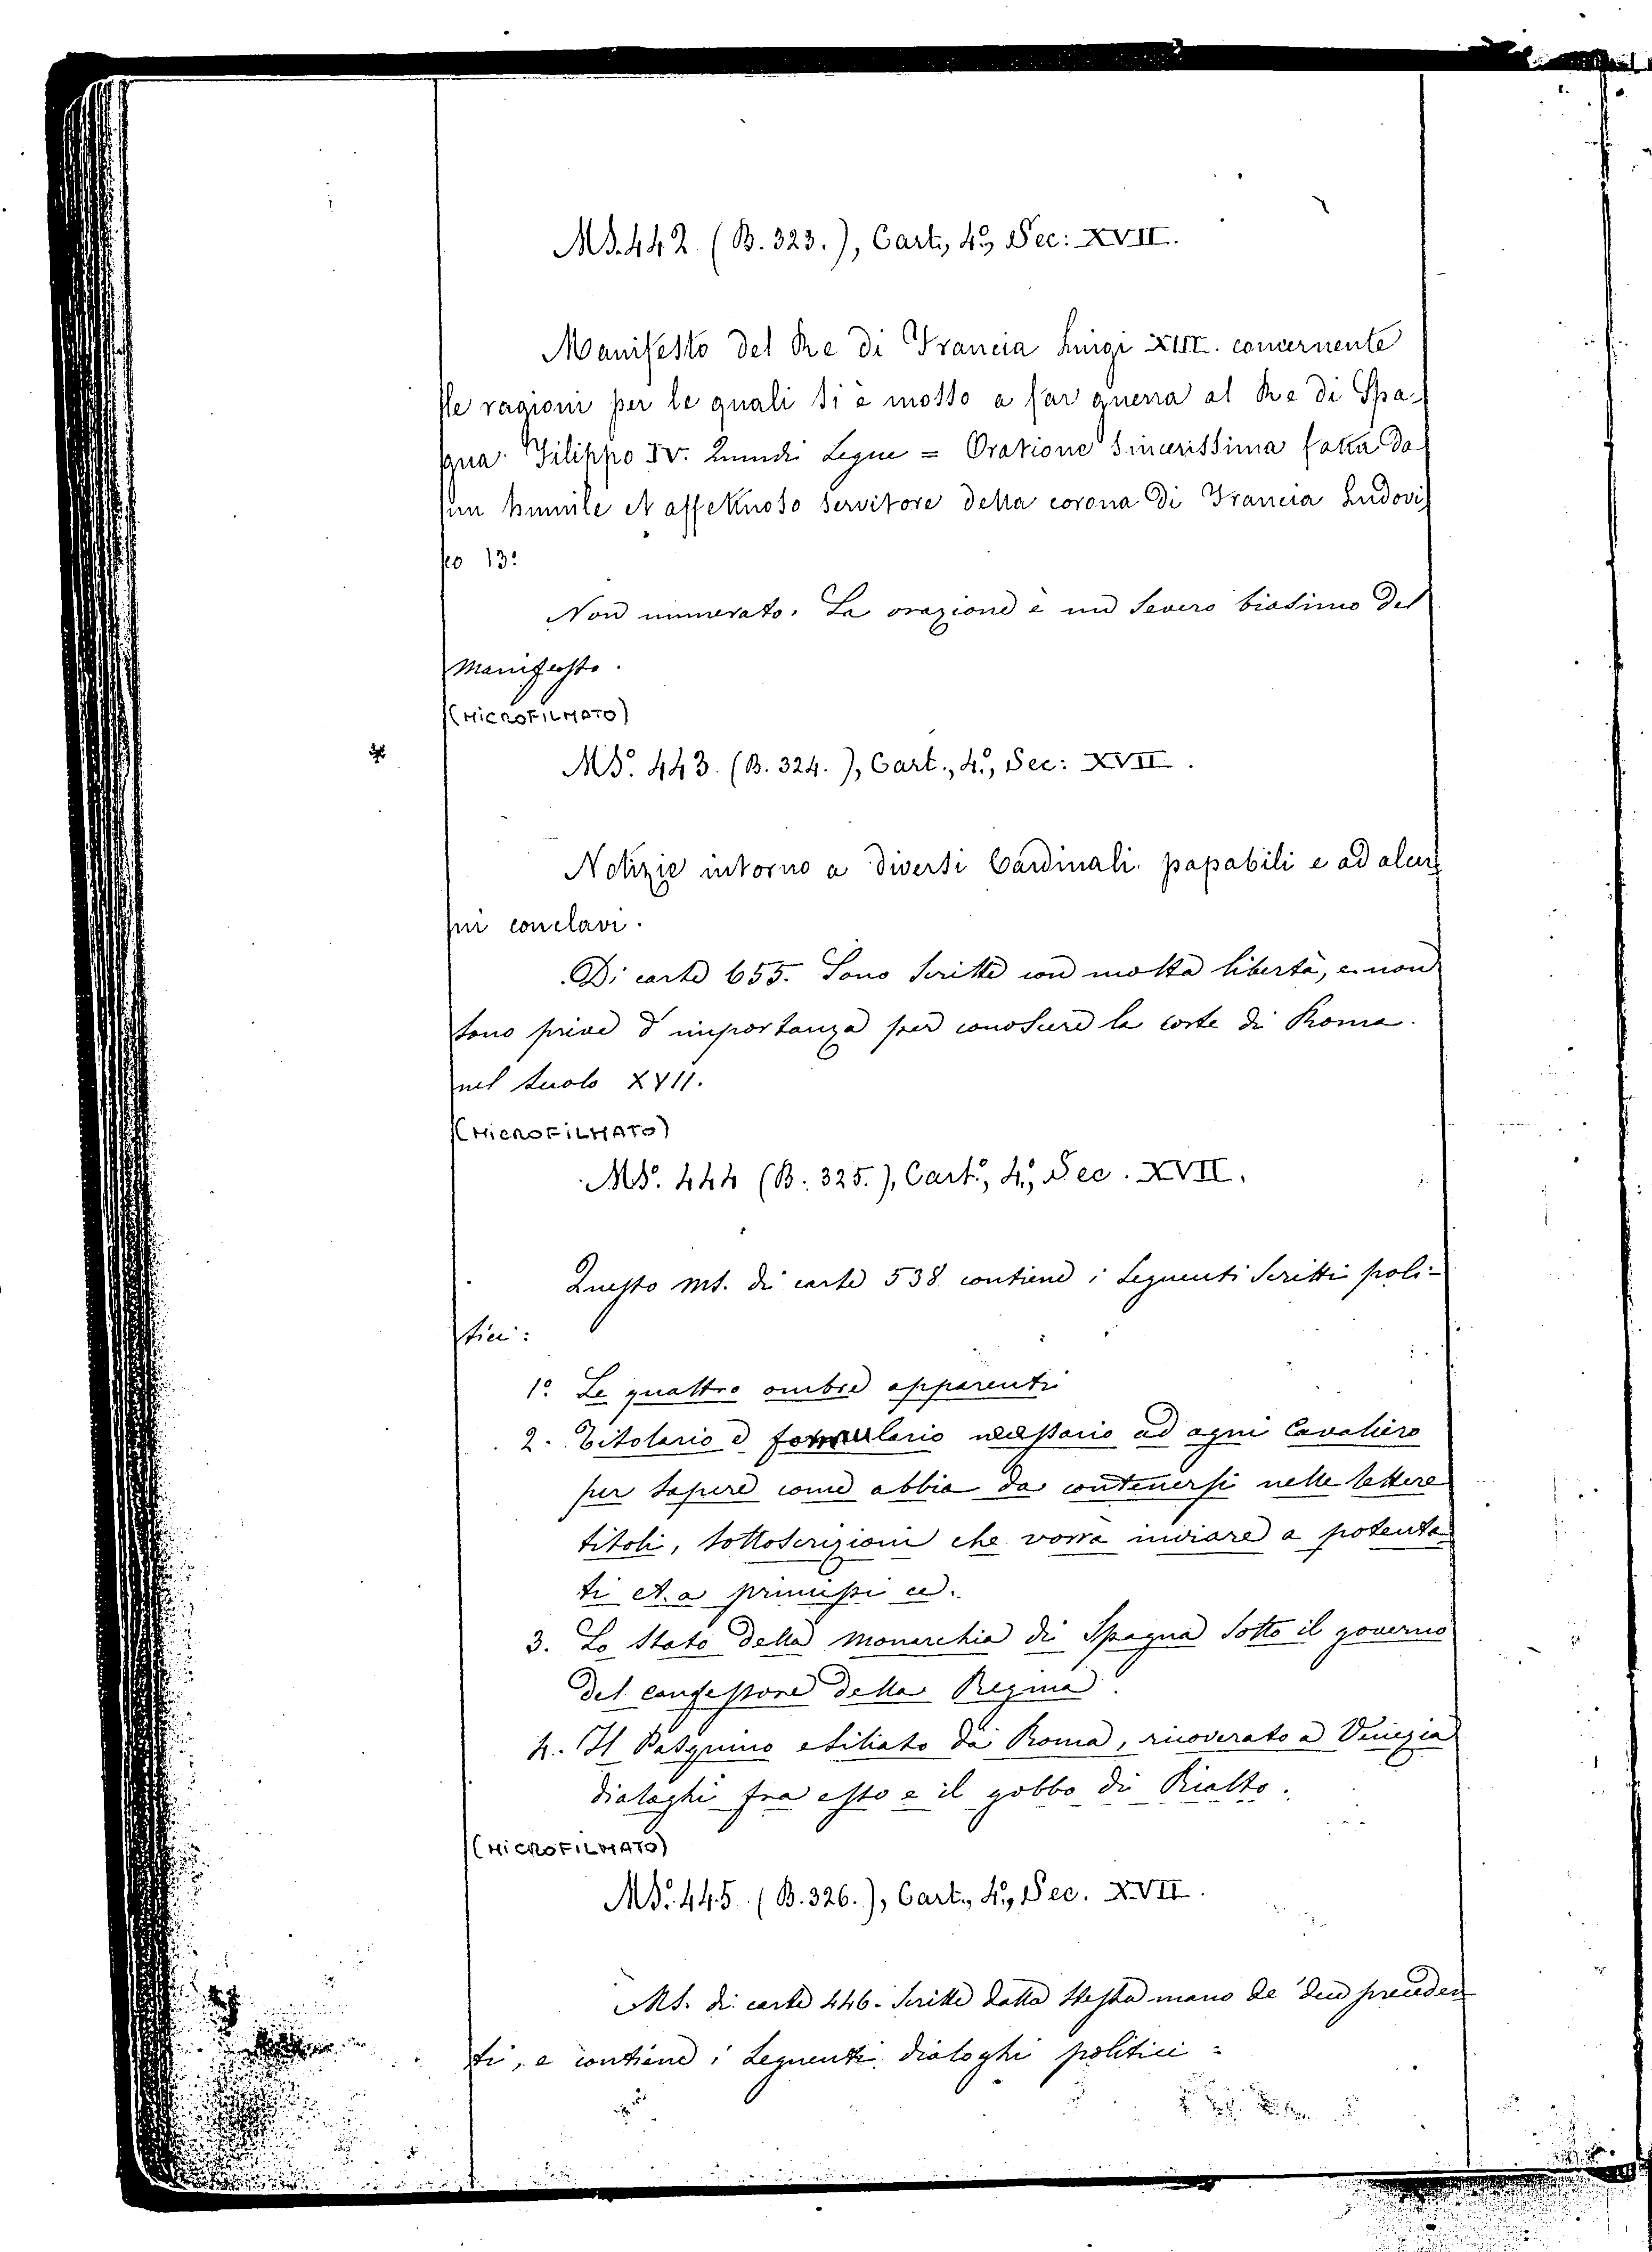 MS. 442 (B. 323.), Cart., 4º, Sec: XVII.
Manifesto del Re di Francia Luigi XIII. concernente
le ragioni per le quali si è mosso a far guerra al Re di Spa-
gna Filippo IV. Quindi segue = Oratione sincerissima fatta da
un humile et affettuoso servitore della corona di Francia Ludovi
co 13º
Non numerato. La orazione è un severo biasimo del
Manifesto.
(MICROFILMATO)
*
MS. 443. (B. 324.), Cart., 4º, Sec: XVII.
Notizie intorno a diversi Cardinali papabili e ad alcu
ni conclavi.
Di carte 655. Sono scritte con molta libertà, e non
sono prive d'importanza per conoscere la corte di Roma
nel secolo XVII.
(MICROFILMATO)
MS. 444 (B. 325.), Cart., 4º, Sec. XVII.
Questo ms. di carte 538 contiene i seguenti scritti poli-
tici:
1º. Le quattro ombre apparenti
2. Titolario e formulario necessario ad ogni Cavaliero
per sapere come abbia da contenersi nelle lettere
titoli, sottoscrizioni che vorrà inviare a potenta
ti et a principi ec.
3. Lo Stato della Monarchia di Spagna sotto il governo
del confessore della Regina.
4. Il Pasquino esiliato da Roma, ricoverato a Venezia
dialoghi fra esso e il gobbo di Rialto.
(MICROFILMATO)
MS. 445 (B. 326.), Cart., 4º, Sec. XVII.
Ms. di carte 446. scritte dalla stessa mano de' due preceden
ti, e contiene i seguenti dialoghi politici: